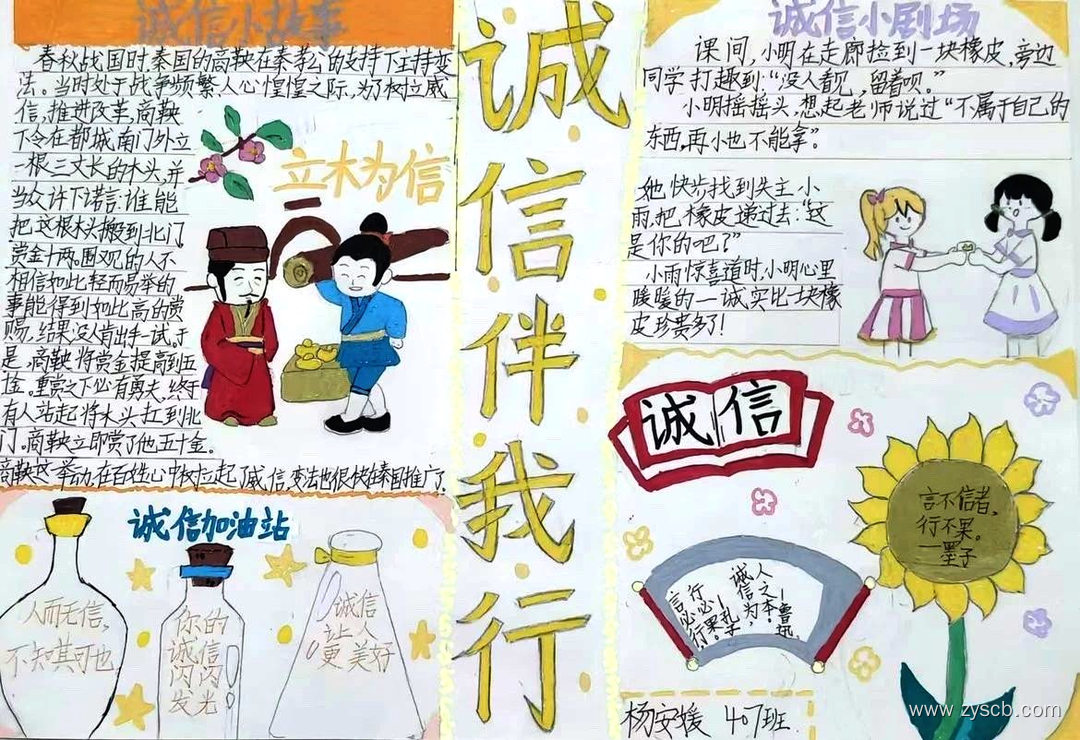 诚信小故事
春秋战国时,秦国的商鞅在秦孝公的支持下主持变
法。当时处于战争频繁人心惶惶之际,为了树立威
信,推进改革,商鞅
下令在都城南门外立
一根三丈长的木头,并
当众许下诺言:谁能
把这根木头搬到北门
赏金十两。围观的人不
相信如此轻而易举的
事能得到如此高的赏
赐,结果没人肯出手一试,于
是,商鞅将赏金提高到五
金。重赏之下必有勇夫,终于
有人站起将木头扛到北
门。商鞅立即赏了他五十金。
商鞅这一举动,在百姓心中树立起了威信,变法也很快在秦国推广了.
立木为信
诚信加油站
人而无信,
不知其可也
你的
诚信
闪闪
发光
诚信
让人
更美好
诚信伴我行
诚信小剧场
课间,小明在走廊捡到一块橡皮,旁边
同学打趣到:“没人看见,留着呗。”
小明摇摇头,想起老师说过“不属于自己的
东西,再小也不能拿”
她快步找到失主小
雨,把橡皮递过去:“这
是你的吧?”
小雨惊喜道时,小明心里
暖暖的一诚实比块橡
皮珍贵多了!
诚信
言不信者,
行不果。
—墨子
言必行
行必果
孔子
诚信为
人之本.
鲁迅.
杨安媛 407班
www.zyscb.com